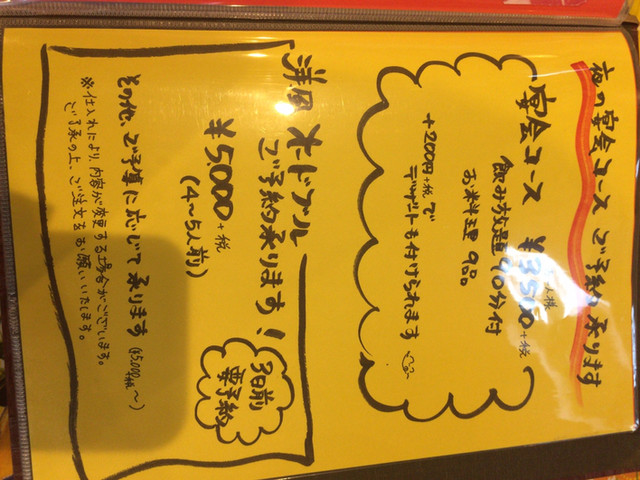 夜の宴会コース ご予約承ります
宴会コース ¥3,500+税
一人様
飲み放題90分付
お料理9品
+200円+税で
デザートも付けられます
洋風オードブル
ご予約承ります!
¥5,000+税
(4~5人前)
3日前
要予約
その他、ご予算に応じて承ります(¥5,000+税~)
※仕入れにより、内容が変更する場合がございます。
ご了承の上、ご注文をお願いいたします。